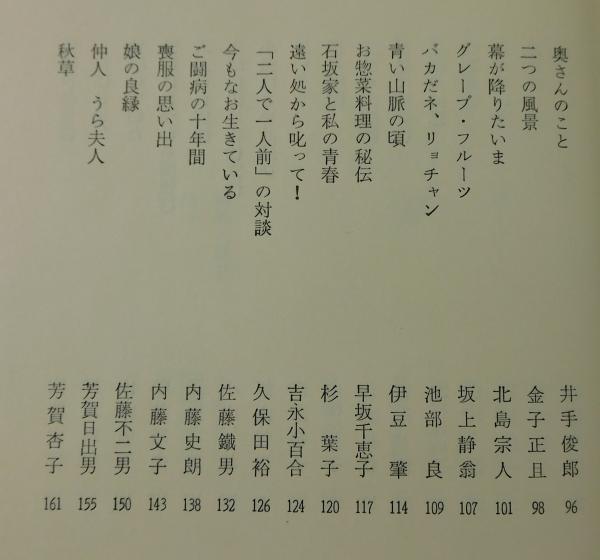 奥さんのこと 井手俊郎 96
二つの風景 金子正且 98
幕が降りたいま 北島宗人 101
グレープ・フルーツ 坂上静翁 107
バカだネ、リョチャン 池部 良 109
青い山脈の頃 伊豆 肇 114
お惣菜料理の秘伝 早坂千恵子 117
石坂家と私の青春 杉 葉子 120
遠い処から叱って! 吉永小百合 124
「二人で一人前」の対談 久保田裕 126
今もなお生きている 佐藤鐵男 132
ご闘病の十年間 内藤史朗 138
喪服の思い出 内藤文子 143
娘の良縁 佐藤不二男 150
仲人 うら夫人 芳賀日出男 155
秋草 芳賀杏子 161